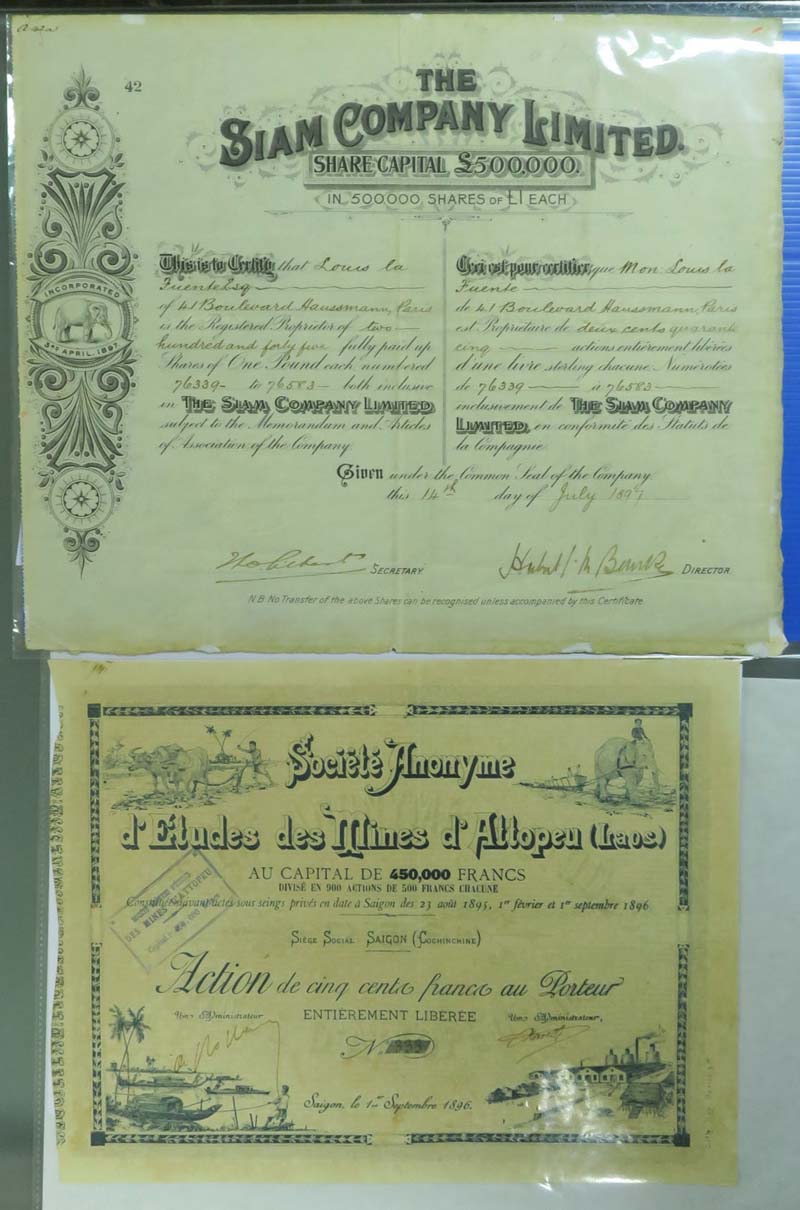 42
THE
SIAM COMPANY LIMITED.
SHARE CAPITAL £500,000.
IN 500,000 SHARES OF £1 EACH
INCORPORATED
3RD APRIL. 1897
This is to Certify that Louis la
Fuente Esq
of 41 Boulevard Haussmann, Paris
is the Registered Proprietor of two
hundred and forty five fully paid up
Shares of One Pound each numbered
76339 to 76583 both inclusive
in THE SIAM COMPANY LIMITED
subject to the Memorandum and Articles
of Association of the Company.
Ceci est pour certifier, que Mon Louis la
Fuente
de 41 Boulevard Haussmann, Paris
est Propriétaire de deux cents quarante
cinq actions entièrement libérées
d'une livre sterling chacune Numérotées
de 76339 à 76583
inclusivement de THE SIAM COMPANY
LIMITED, en conformité des Statuts de
la Compagnie
Given under the Common Seal of the Company.
this 14th day of July 1897
SECRETARY
DIRECTOR
N.B. No Transfer of the above Shares can be recognised unless accompanied by this Certificate.
Société Anonyme
d'Etudes des Mines d'Attopeu (Laos)
AU CAPITAL DE 450,000 FRANCS
DIVISÉ EN 900 ACTIONS DE 500 FRANCS CHACUNE
sous seings privés en date à Saigon des 23 août 1895, 1er février et 1er septembre 1896
DES MINES D'ATTOPEU
SIÈGE SOCIAL SAIGON (COCHINCHINE)
Action de cinq cents francs au Porteur
ENTIÈREMENT LIBÉRÉE
Un Administrateur
Un Administrateur,
N.
Saigon, le 1er Septembre 1896.